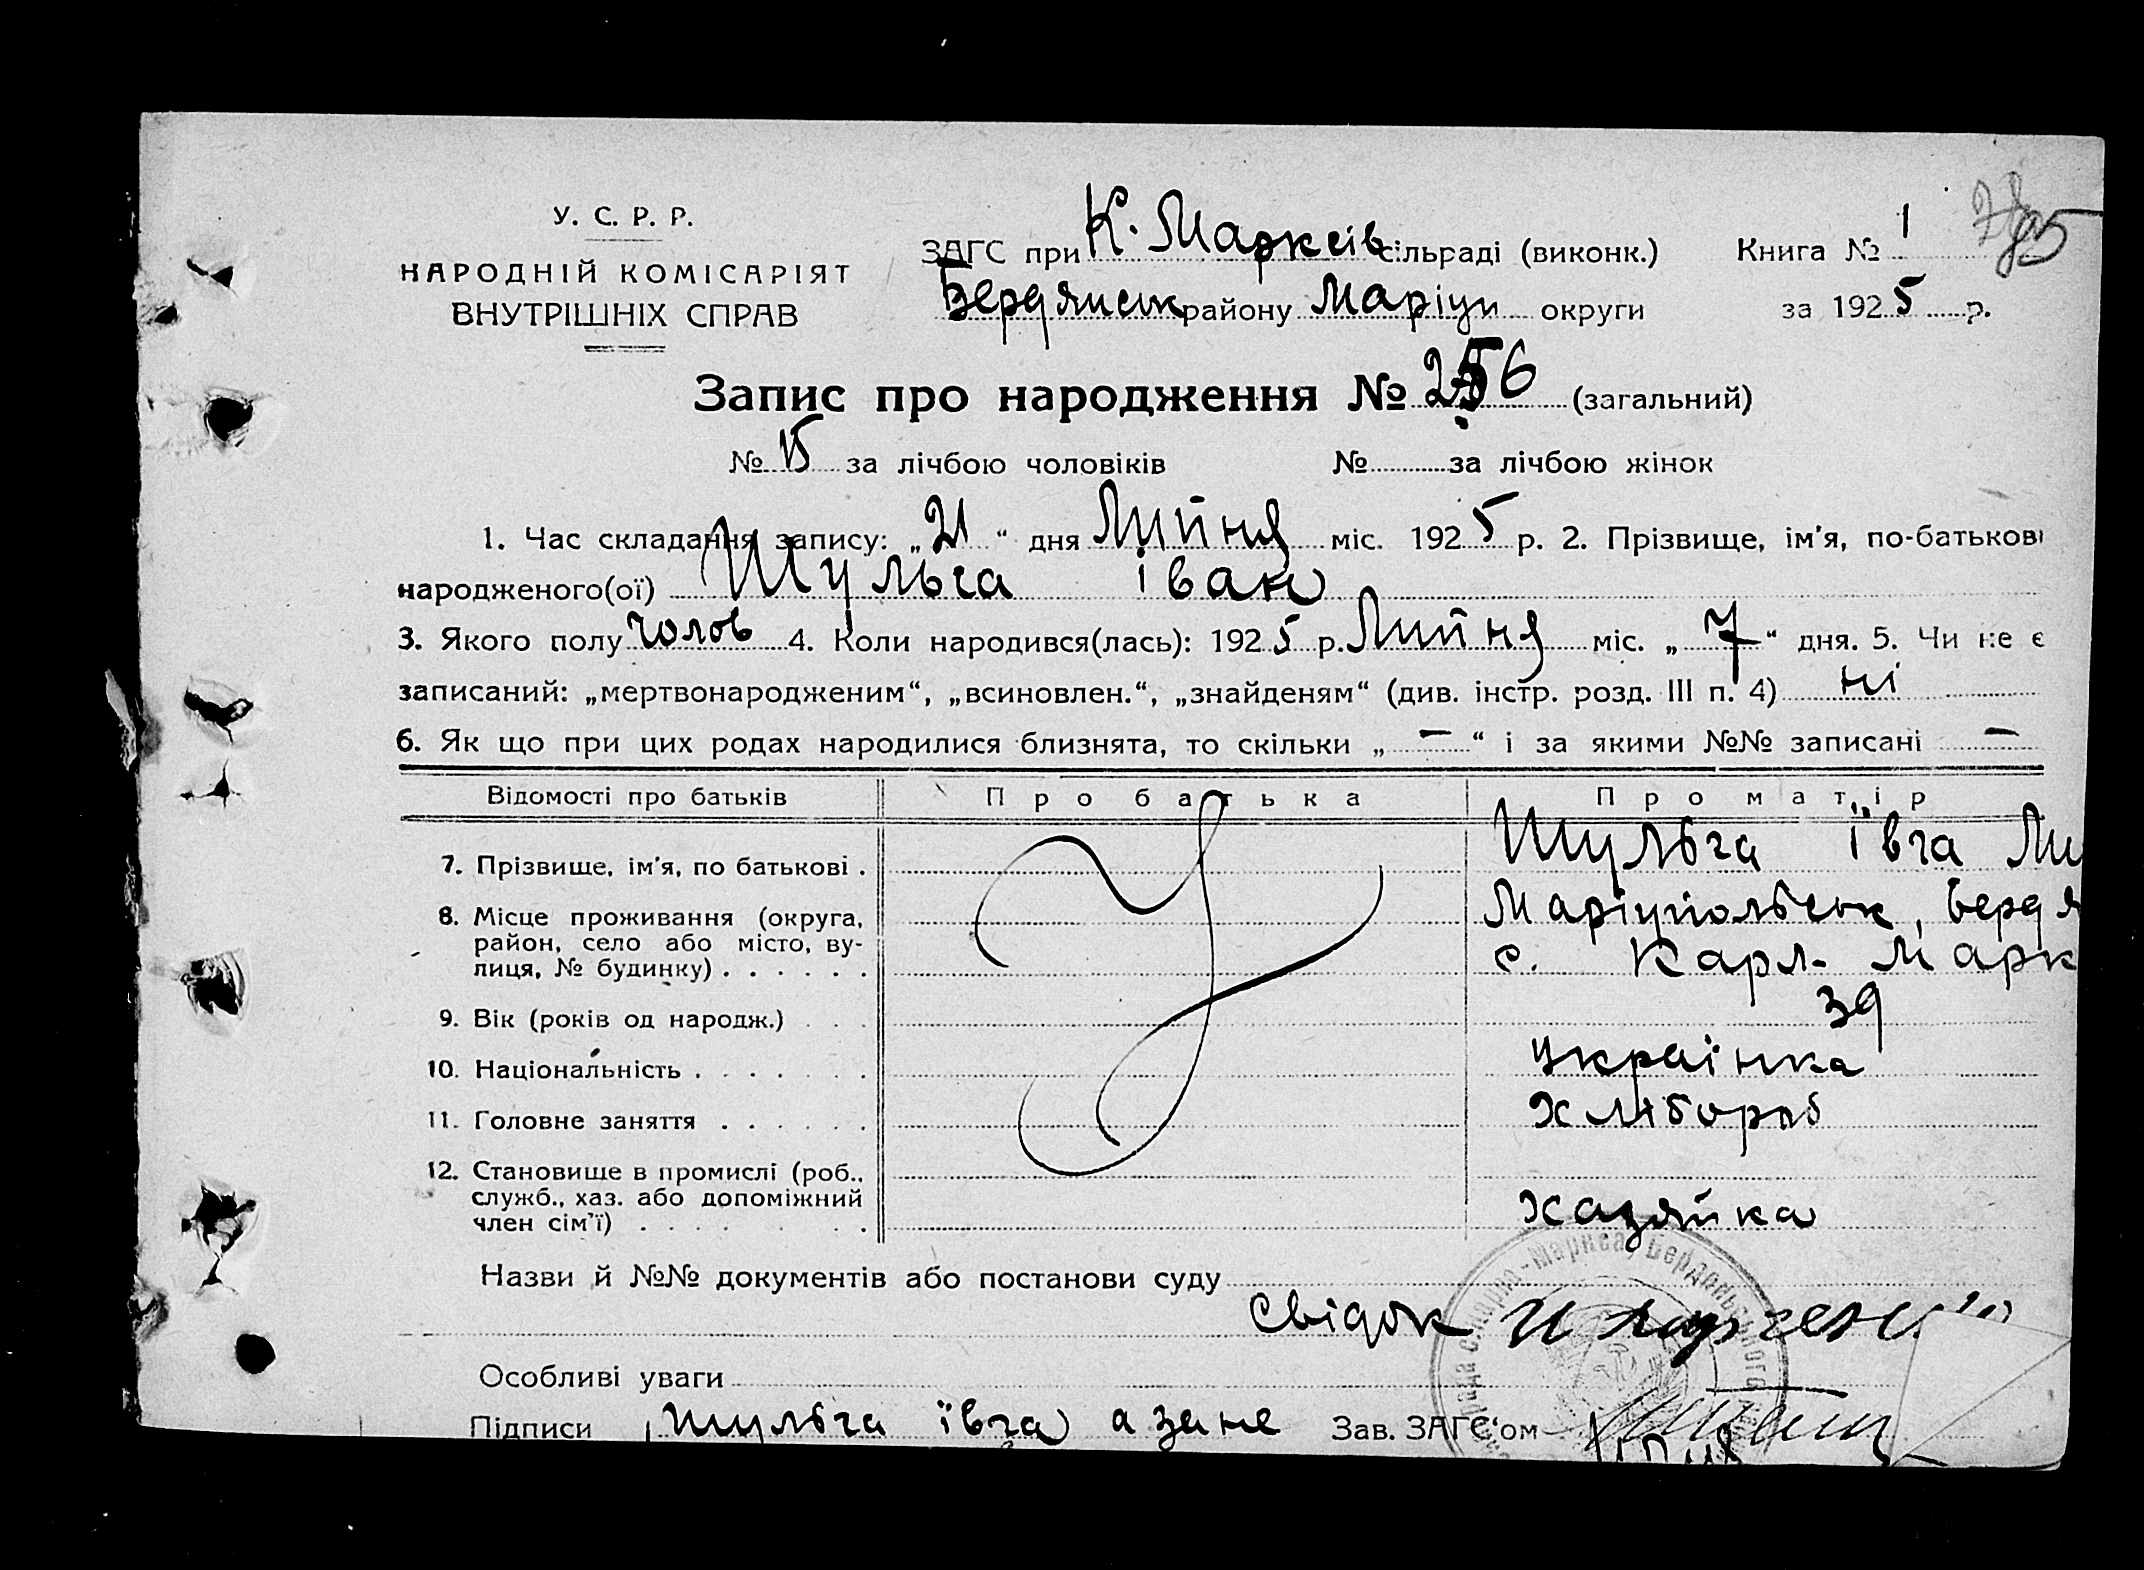 У. С. Р. Р.
НАРОДНІЙ КОМІСАРІЯТ
ВНУТРІШНІХ СПРАВ
ЗАГС при К. Марксів сільраді (виконк.) Книга № 1
Бердянськ району Маріуп округи за 1925 р.
Запис про народження № 256 (загальний)
№ 15 за лічбою чоловіків № за лічбою жінок
1. Час складання запису: „21“ дня Липня міс. 1925 р. 2. Прізвище, ім'я, по-батькові
народженого(ої) Шульга Іван
3. Якого полу чолов 4. Коли народився(лась): 1925 р. Липня міс. „7“ дня. 5. Чи не є
записаний: „мертвонародженим“, „всиновлен.“, „знайденям“ (див. інстр. розд. III п. 4) ні
6. Як що при цих родах народилися близнята, то скільки „ — “ і за якими №№ записані —
Відомості про батьків Про батька Про матір
7. Прізвище, ім'я, по батькові . Шульга Ївга
8. Місце проживання (округа, Маріупольськ, Бердя
район, село або місто, ву-
лиця, № будинку) . . . . . . с. Карл-Марк
9. Вік (років од народж.) . . . 39
10. Національність . . . . . . . українка
11. Головне заняття . . . . . . хлібороб
12. Становище в промислі (роб.,
служб., хаз. або допоміжний
член сім'ї) . . . . . хазяйка
Назви й №№ документів або постанови суду
Свідок
Особливі уваги
Підписи Шульга Ївга а за не Зав. ЗАГС'ом